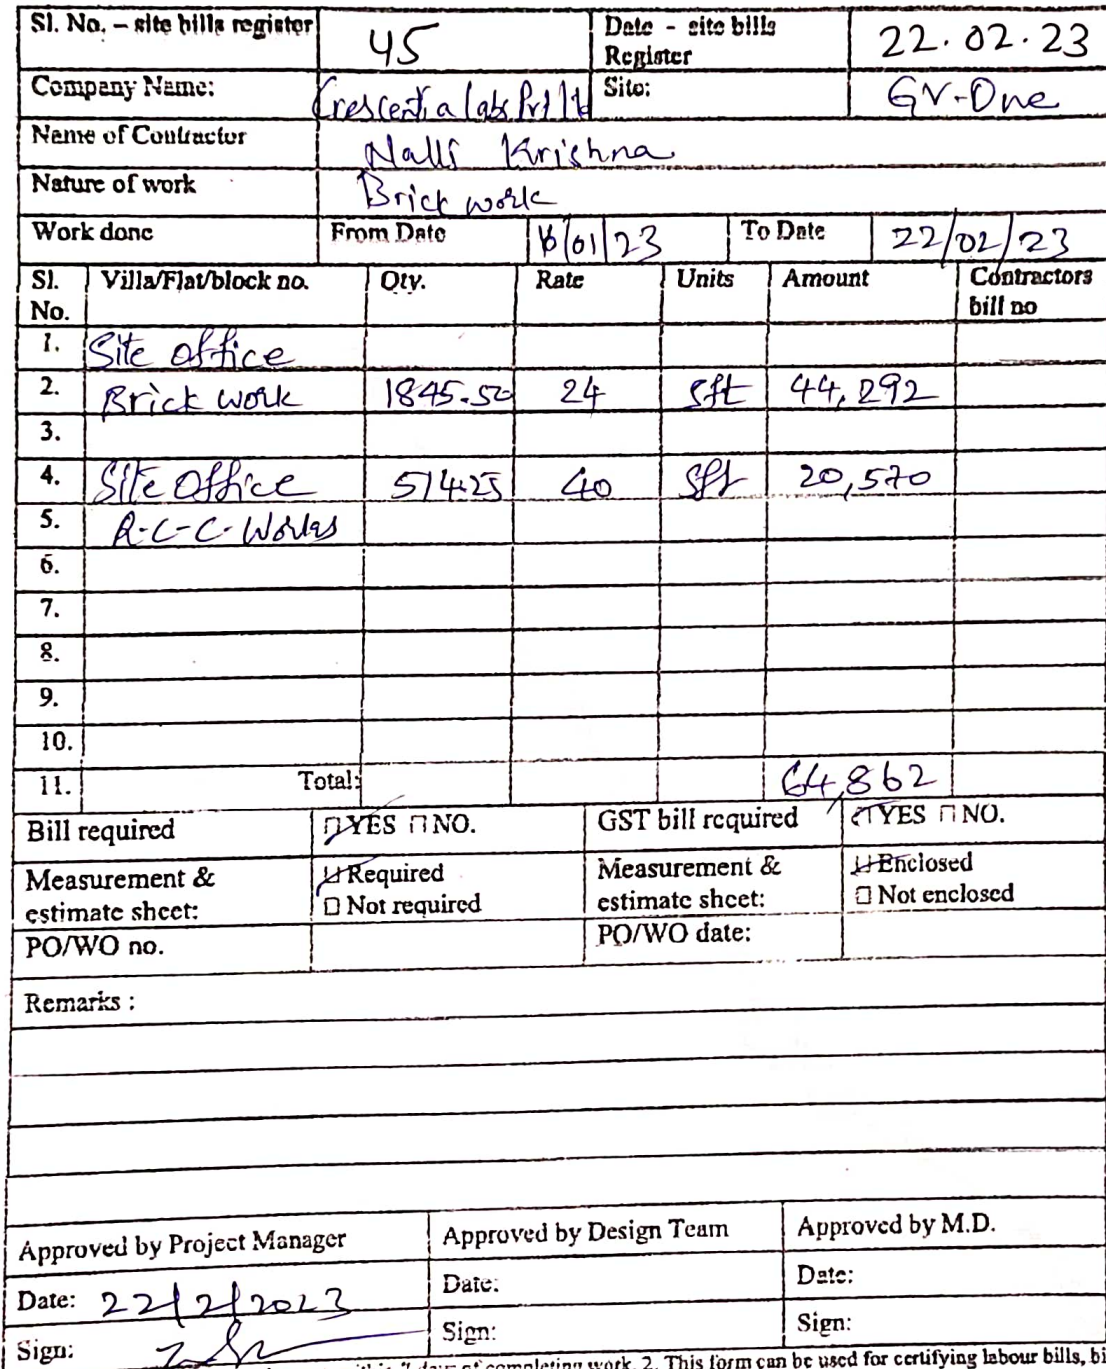 Sl. No. – site bills register 45 Date - site bills Register 22.02.23
Company Name: Crescentia labs Pvt ltd Site: GV-One
Name of Contractor Nalli Krishna
Nature of work Brick work
Work done From Date 16/01/23 To Date 22/02/23
Sl. No. Villa/Flat/block no. Qty. Rate Units Amount Contractors bill no
1. Site office
2. Brick work 1845.50 24 sft 44,292
3.
4. Site Office 514.25 40 sft 20,570
5. R.C.C. Works
6.
7.
8.
9.
10.
11. Total: 64,862
Bill required YES NO. GST bill required YES NO.
Measurement & estimate sheet: Required Not required Measurement & estimate sheet: Enclosed Not enclosed
PO/WO no. PO/WO date:
Remarks :
Approved by Project Manager Approved by Design Team Approved by M.D.
Date: 22/2/2023 Date: Date:
Sign: Sign: Sign:
7 days of completing work. 2. This form can be used for certifying labour bills, bi